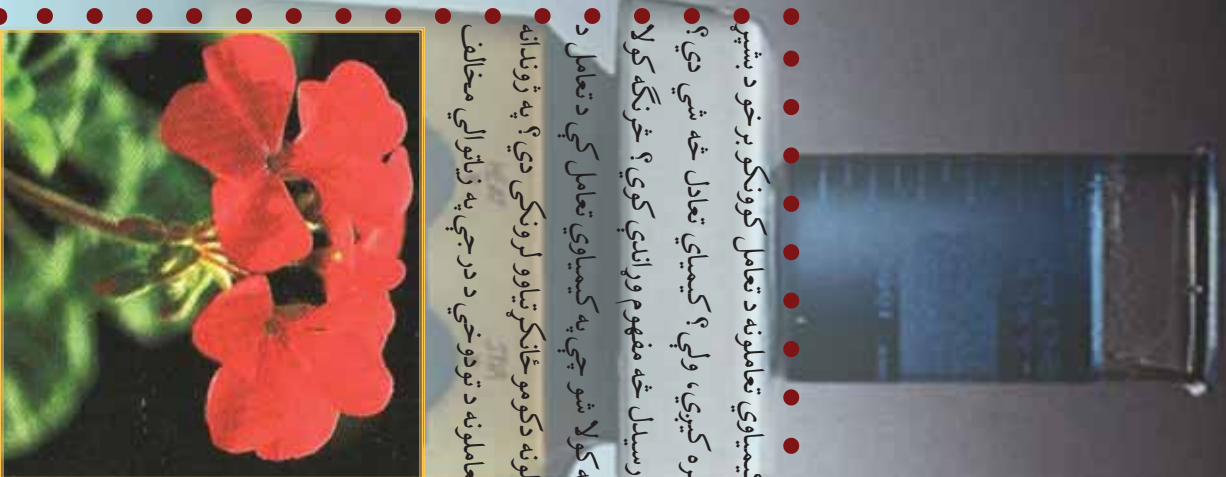 کیمیاوي تعاملونه د تعامل کوونکو برخو د بشپړ
کیږي، ولې؟ کیمیاي تعادل څه شي دي؟
رسیدل څه مفهوم وړاندې کوي؟ څرنگه کولا
کولا شو چې په کیمیاوي تعامل کې د تعامل د
دکومو ځانگړتیاوو لرونکي دي؟ په ژوندانه
د تودوخې د درجې په زیاتوالي مخالف